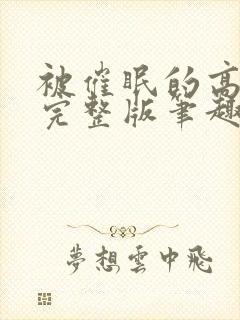 被催眠的高
完整版笔趣
夢想雲中飛